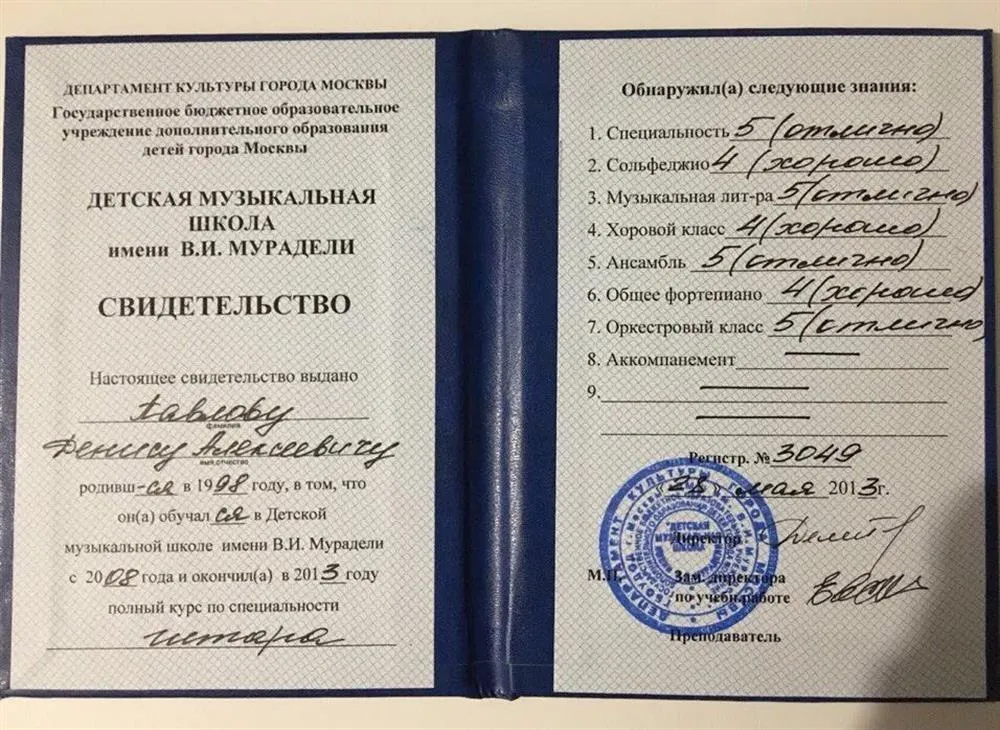 ДЕПАРТАМЕНТ КУЛЬТУРЫ ГОРОДА МОСКВЫ
Государственное бюджетное образовательное
учреждение дополнительного образования
детей города Москвы
ДЕТСКАЯ МУЗЫКАЛЬНАЯ
ШКОЛА
имени В.И. МУРАДЕЛИ
СВИДЕТЕЛЬСТВО
Настоящее свидетельство выдано
Павлову
фамилия
Денису Алексеевичу
имя, отчество
родивш-ся в 1998 году, в том, что
он(а) обучал ся в Детской
музыкальной школе имени В.И. Мурадели
с 2008 года и окончил(а) в 2013 году
полный курс по специальности
гитара
Обнаружил(а) следующие знания:
1. Специальность 5 (отлично)
2. Сольфеджио 4 (хорошо)
3. Музыкальная лит-ра 5 (отлично)
4. Хоровой класс 4 (хорошо)
5. Ансамбль 5 (отлично)
6. Общее фортепиано 4 (хорошо)
7. Оркестровый класс 5 (отлично)
8. Аккомпанемент
9.
Регистр. № 3049
"28" мая 2013г.
Директор
М.П.
Зам. директора
по учебн.работе
Преподаватель
ДЕПАРТАМЕНТ КУЛЬТУРЫ ГОРОДА МОСКВЫ
"ДЕТСКАЯ
МУЗЫКАЛЬНАЯ
ШКОЛА